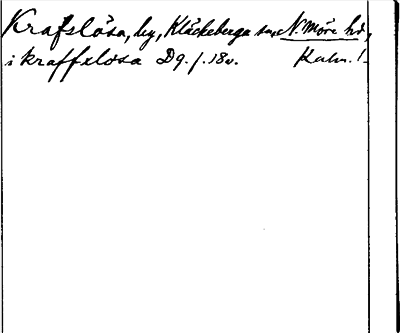 Krafslösa, by, Kläckeberga sn, N. Möre hd,
i kraffzlösa D9. f. 18v. Kalm. l.